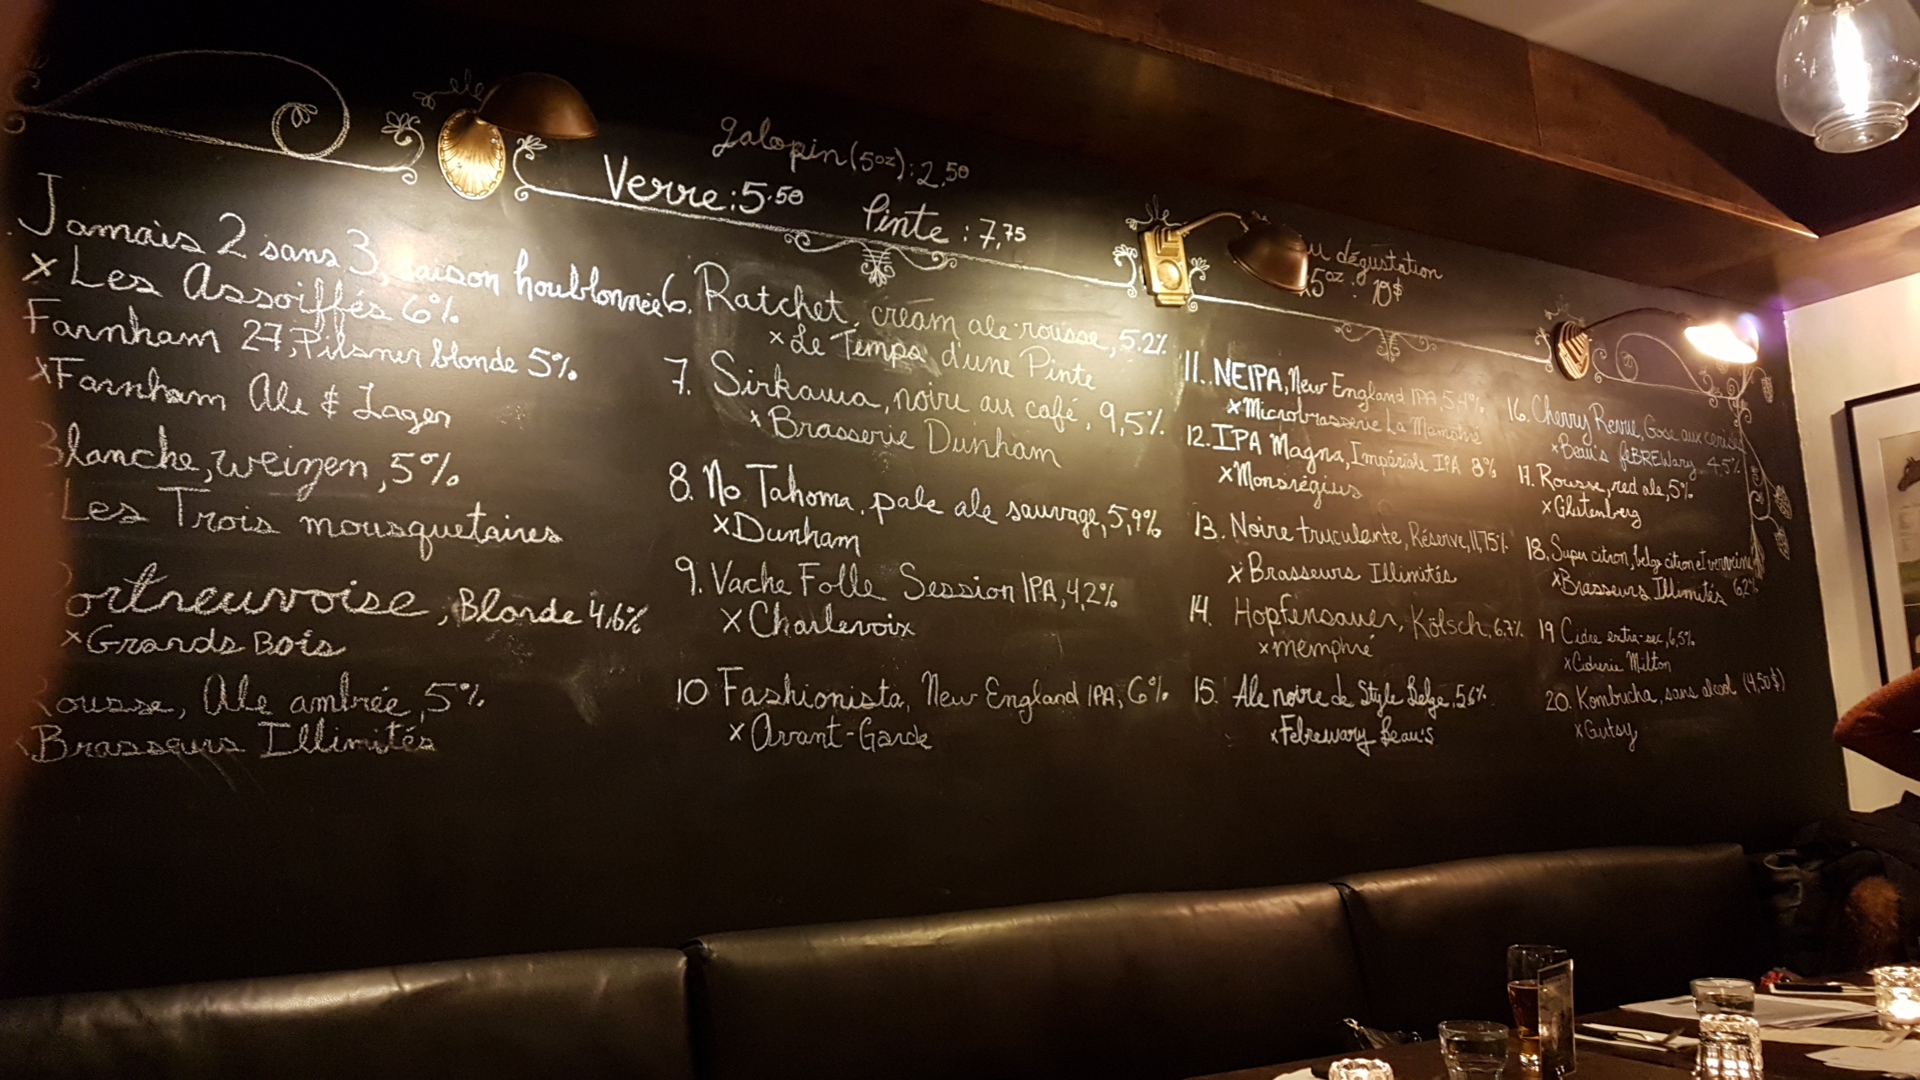 galopin (5oz): 2,50
Verre: 5.50
Pinte : 7,75
dégustation
5oz : 10$
Jamais 2 sans 3, saison houblonnée
x Les Assoiffés 6%
Farnham 27, Pilsner blonde 5%
x Farnham Ale & Lager
Blanche, weizen, 5%
Les Trois mousquetaires
Portneuvoise, Blonde 4,6%
x Grands Bois
Rousse, Ale ambrée, 5%
x Brasseurs Illimités
6. Ratchet, cream ale rousse, 5.2%
x Le Temps d'une Pinte
7. Sirkawa, noire au café, 9,5%
x Brasserie Dunham
8. No Tahoma, pale ale sauvage, 5,9%
x Dunham
9. Vache Folle Session IPA, 4,2%
x Charlevoix
10 Fashionista, New England IPA, 6%
x Avant-Garde
11. NEIPA, New England IPA, 5,4%
x Microbrasserie La Memphré
12. IPA Magna, Impériale IPA 8%
x Monsrégius
13. Noire truculente, Réserve, 11,75%
x Brasseurs Illimités
14. Hopfensauer, Kölsch, 6,7%
x memphré
15. Ale noire de Style Belge, 5,6%
x Febrewary Beau's
16. Cherry Revue, Gose aux cerises
x Beau's feBREWary 4.5%
17. Rousse, red ale, 5%
x Glutenberg
18. Super citron, belge citron et verveine
x Brasseurs Illimités 6.2%
19 Cidre extra-sec, 6,5%
x Cidrerie Milton
20. Kombucha, sans alcool (4,50$)
x Gutsy